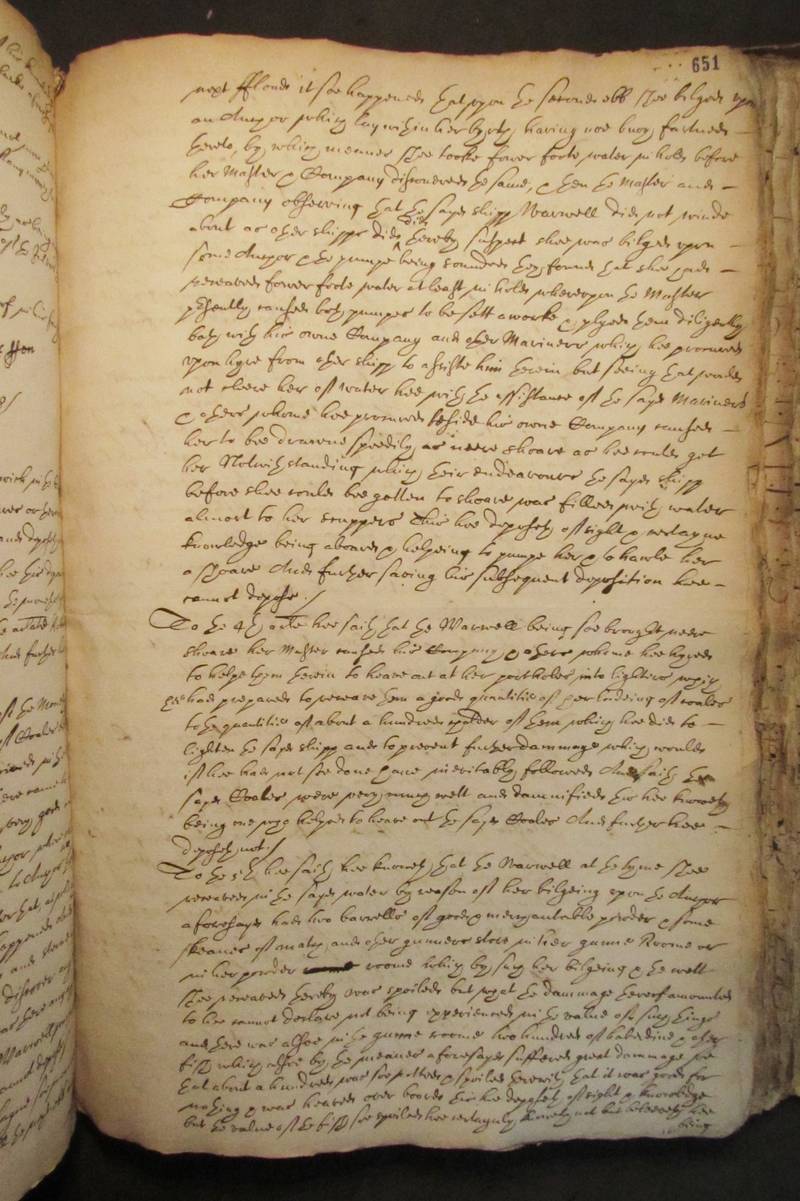 651
next fflood it soe happened that upon the second ebb shee bilged upon
an Anchor which lay within her byrth, having noe buoy fastned
thereto, by which meanes shee tooke fower foote water in hold before
her Master & Company discovered the same, & then the Master and
Company observing that the sayd shipp Marvell did not winde
about as other shipps did, did thereby suspect shee was bilged upon
some Anchor & the pumpe being sounded they found that shee had
received fower foote water at least in hold whereupon the Master
presently caused both pumpes to be sett a worke & plyed them diligently
both with his owne Company and other Mariners which hee procured
upon hyre from other shipp to assiste him therein but seeing that could
not cleere her of water hee with the assistance of the sayd Mariners
& others whome hee procured beside his owne Company caused
her to bee drawne speedily as neere shoare as hee could get
her Notwithstanding which their endeavours the sayd shipp
before shee could bee gotten to shoare was filled with water
almost to her scuppers This hee deposeth of sight & certayne
knowledge being aboard & helpeing to pumpe her & to hawle her
a shoare And further saving his subsequent deposition hee
cannot depose /
To the 4th arlle hee saith that the Marvell being soe brought neere
shoare her Master caused his Company & others whome hee hyred
to helpe them therein to heave out at her portholes into lighters which
hee had prepared to receave them a good quantitie of her ladeing of coales
to the quantitie of about a hundred chalder of them which hee did to
lighten the sayd shipp and to prevent further dammage which would
if hee had not soe done have inevitably followed And saith the
sayd Coales were very much wett and damnified this hee knoweth
being one who helped to heave out the sayd Coales And further hee
deposeth not /
To the 5th hee saith hee knoweth that the Marvell at the tyme shee
received in the sayd water by reason of her bilgeing upon the Anchor
aforesayd had two barrells of good & merchantable powder & some
skeanes of match and other gunners store in her gunne Roome or
in her powder roome which by such her bilgeing & the wett
shee received thereby was spoiled but what the dammage thereof amounted
to hee cannot declare not being experienced in the value of such things
and there was alsoe in the gunne roome two hundred of haberdine & other
fish which alsoe by the meanes aforesayd suffered great dammage soe
that about a hundred was soe rotted & spoiled therewith that it was good for
nothing & was heaved over board this hee deposeth of sight & knowledge
but the value of the fish soe spoiled hee certaynly knoweth not but beleeveth hee
being